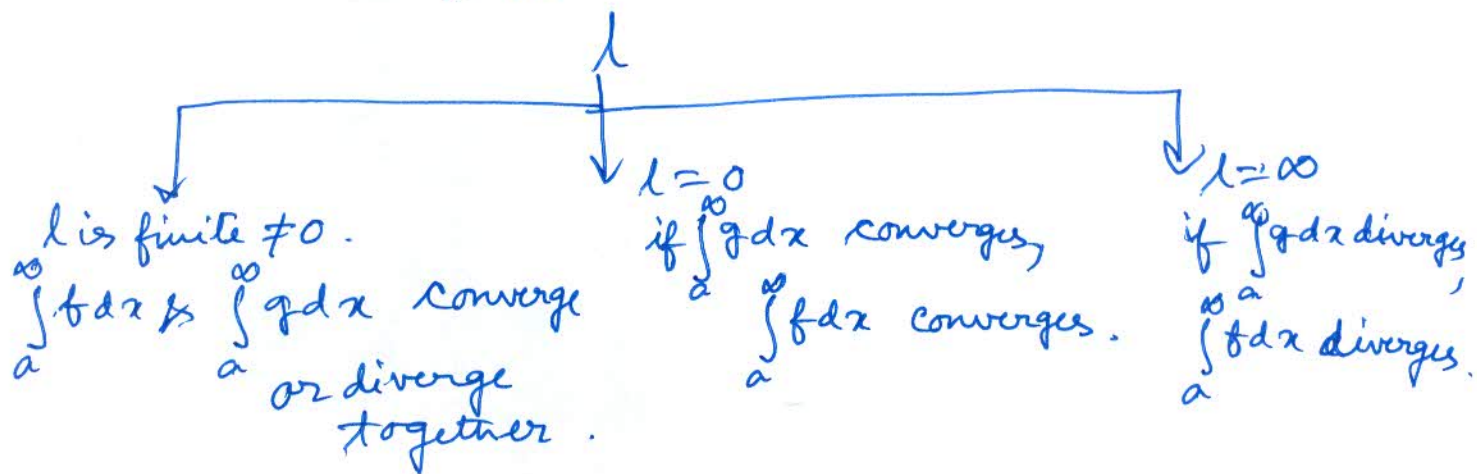 l
l is finite ≠ 0.
∫_a^∞ f dx & ∫_a^∞ g dx converge
or diverge
together.
l = 0
if ∫_a^∞ g dx converges,
∫_a^∞ f dx converges.
l = ∞
if ∫_a^∞ g dx diverges,
∫_a^∞ f dx diverges.